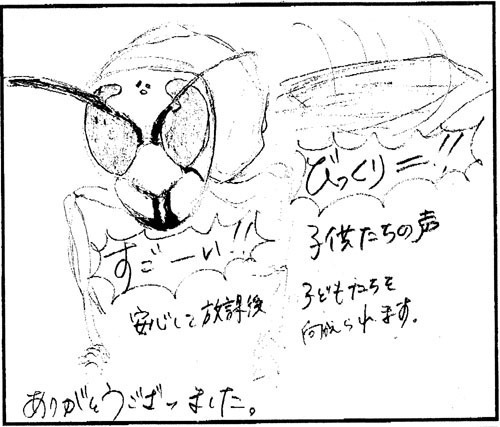 びっくりー!!
すごーい!!
子供たちの声
安心して放課後
子どもたちを
迎えられます。
ありがとうございました。